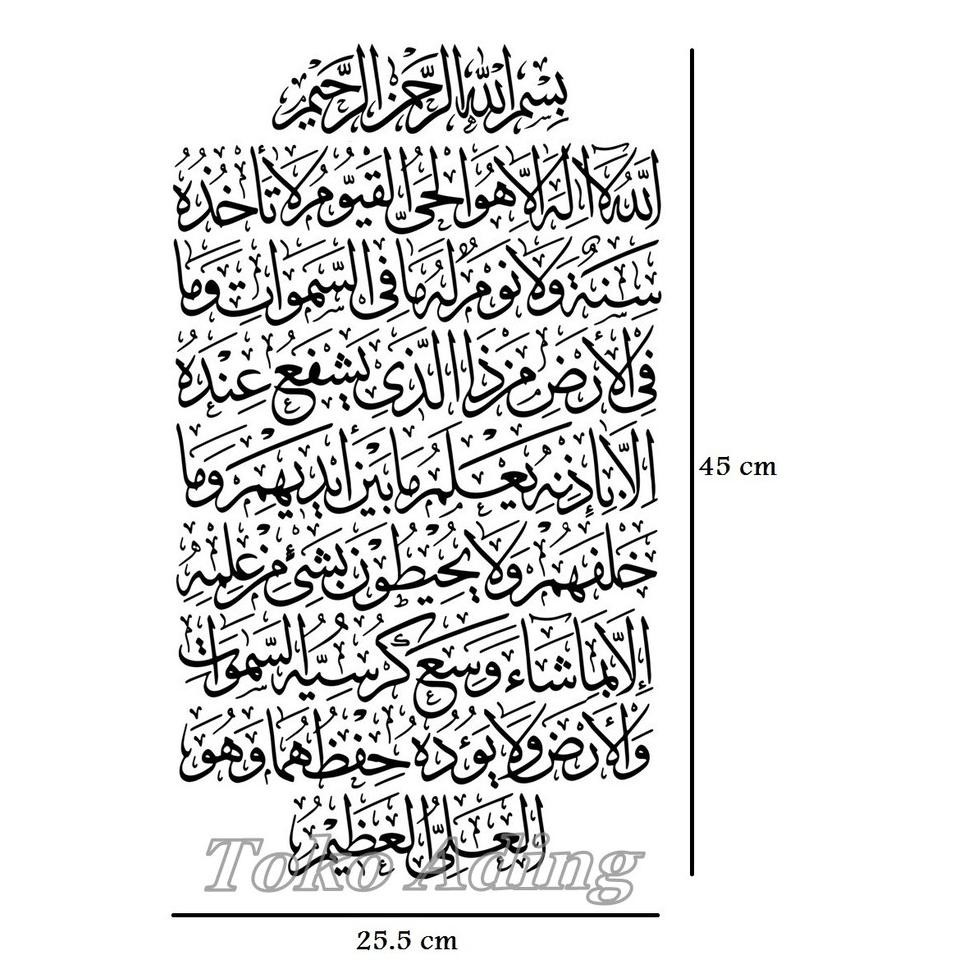 بِسْمِ اللهِ الرَّحْمٰنِ الرَّحِيْمِ
اَللهُ لَا اِلٰهَ اِلَّا هُوَ الْحَيُّ الْقَيُّوْمُ لَا تَأْخُذُهُ
سِنَةٌ وَلَا نَوْمٌ لَهُ مَا فِى السَّمٰوَاتِ وَمَا
فِى الْأَرْضِ مَنْ ذَا الَّذِى يَشْفَعُ عِنْدَهُ
اِلَّا بِإِذْنِهِ يَعْلَمُ مَا بَيْنَ اَيْدِيْهِمْ وَمَا
خَلْفَهُمْ وَلَا يُحِيْطُوْنَ بِشَيْئٍ مِنْ عِلْمِهِ
إِلَّا بِمَا شَاءَ وَسِعَ كُرْسِيُّهُ السَّمٰوَاتِ
وَالْأَرْضَ وَلَا يَؤُدُهُ حِفْظُهُمَا وَهُوَ
الْعَلِىُّ الْعَظِيْمُ
Toko Ading
45 cm
25.5 cm